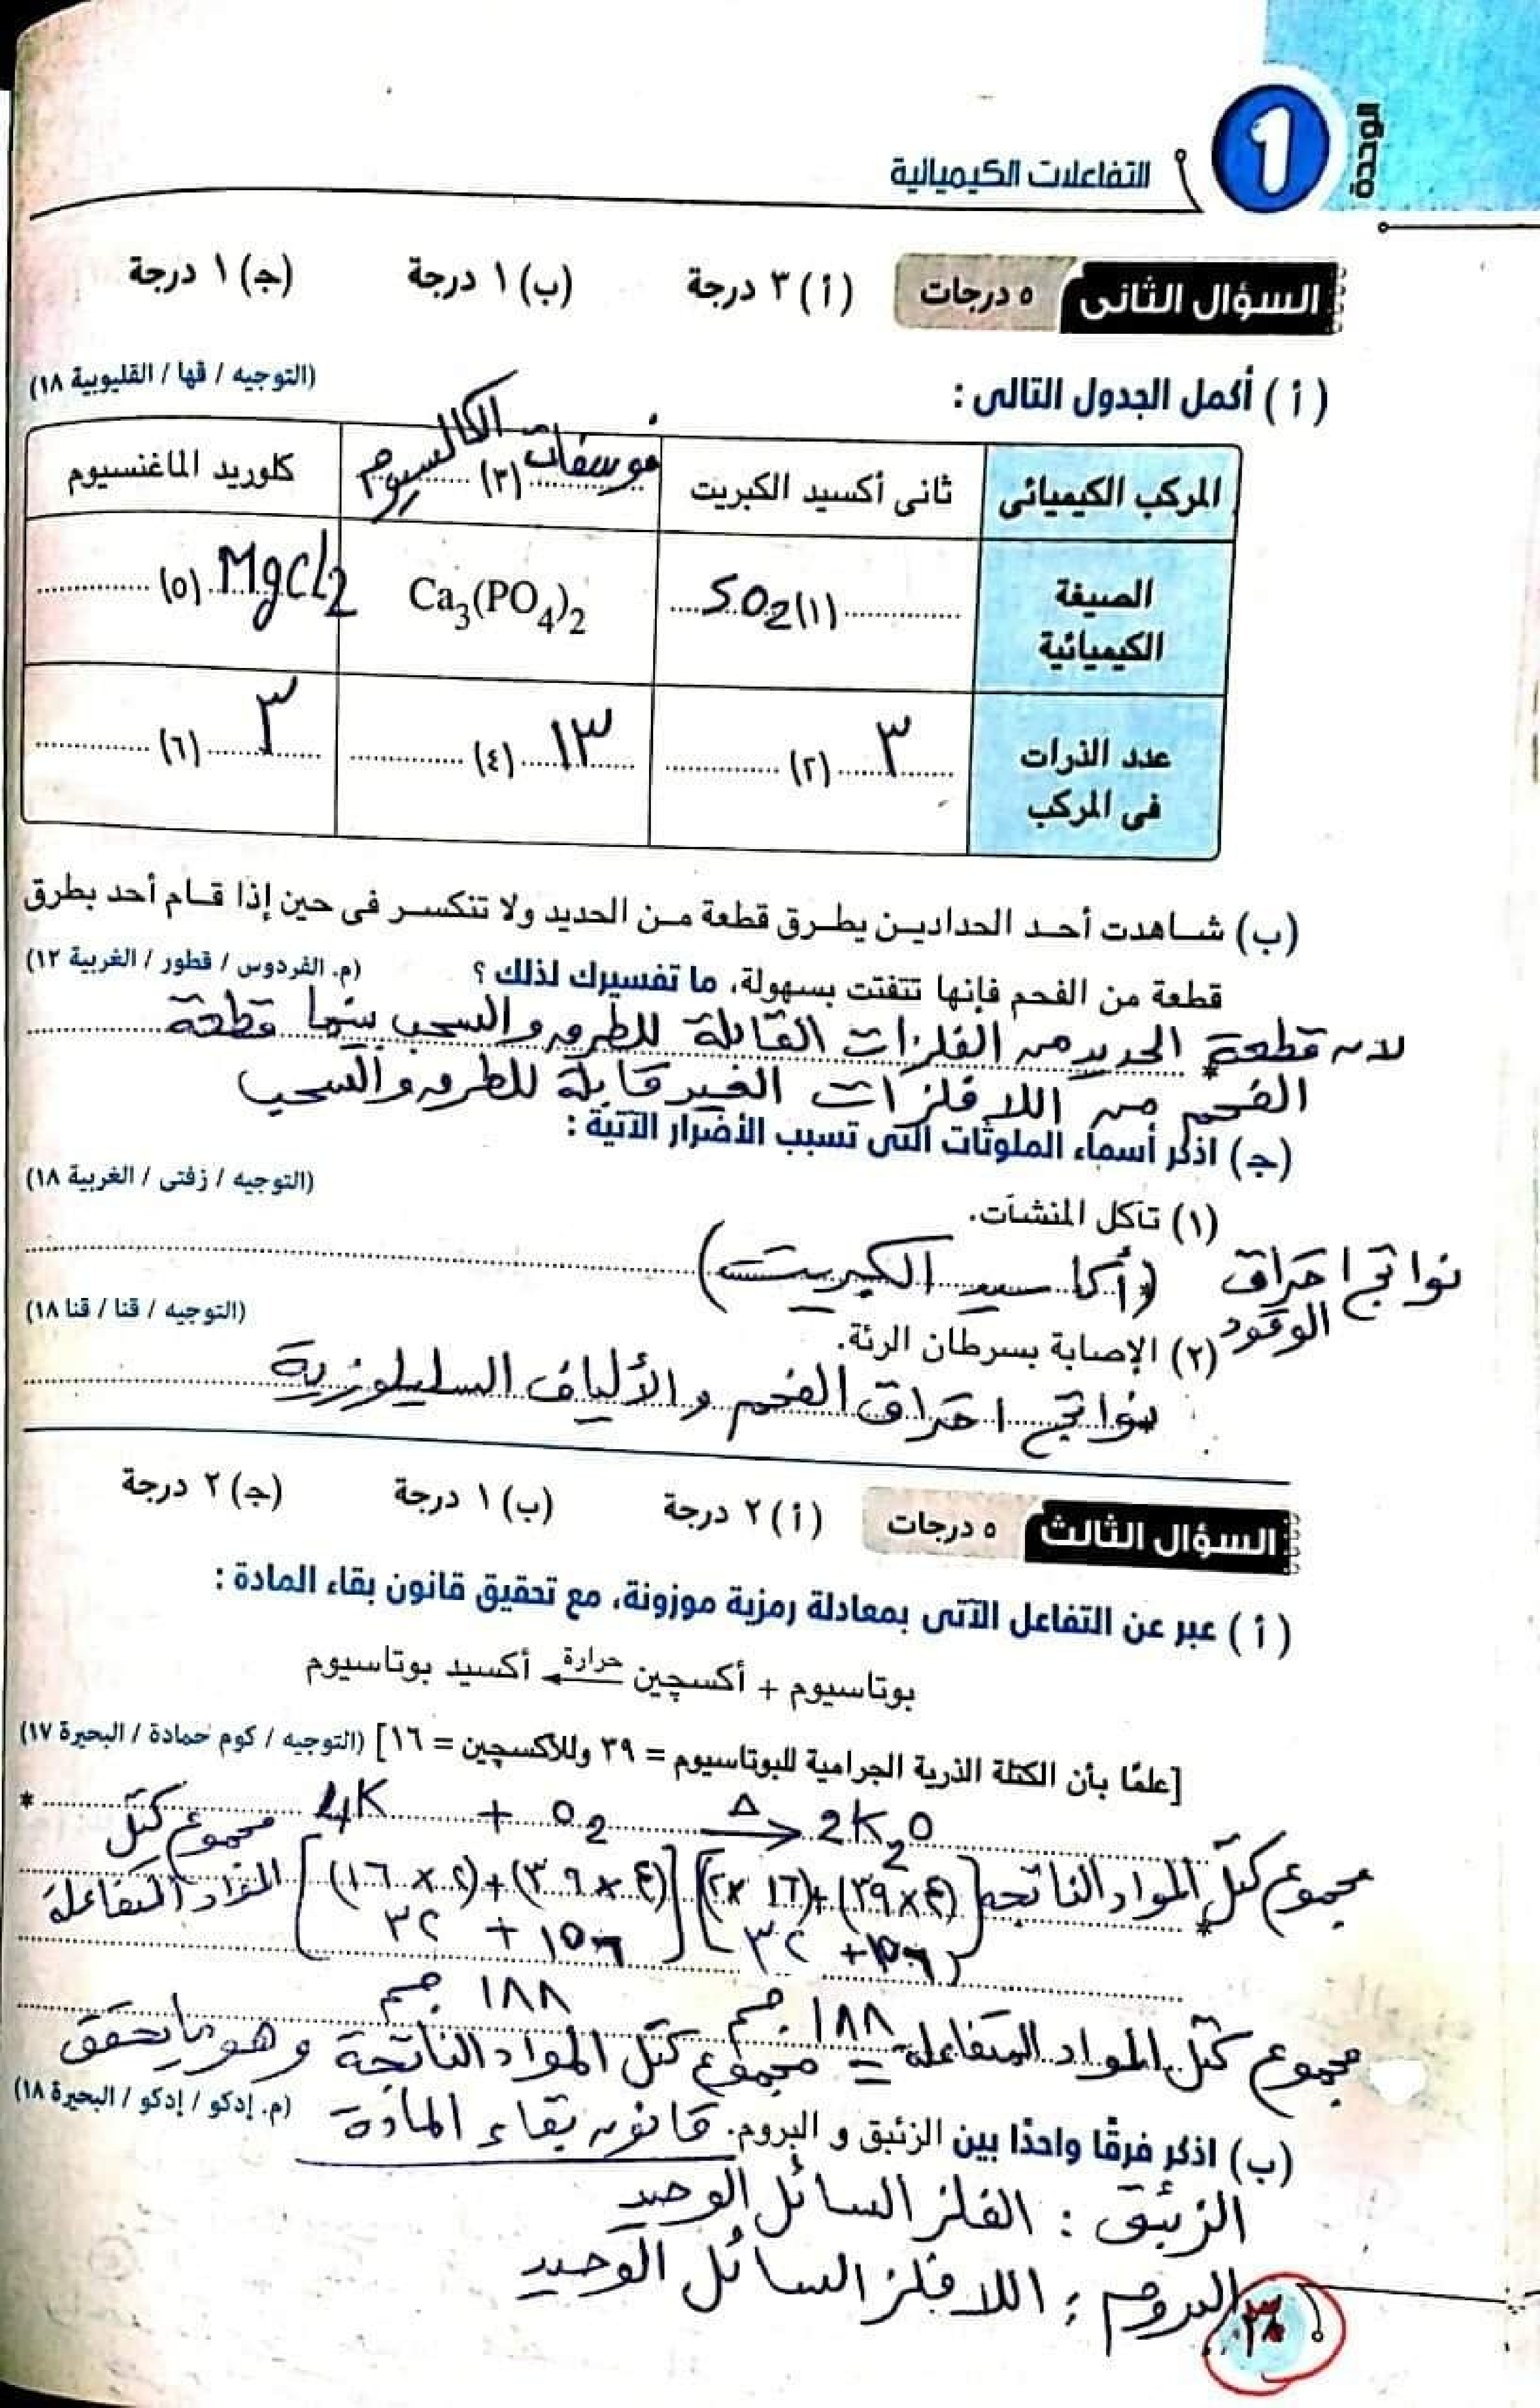 الوحدة
1
التفاعلات الكيميائية
السؤال الثانى ٥ درجات (أ) ٣ درجة (ب) ١ درجة (جـ) ١ درجة
(أ) أكمل الجدول التالى : (التوجيه / قها / القليوبية ١٨)
المركب الكيميائى ثانى أكسيد الكبريت (٣) فوسفات الكالسيوم كلوريد الماغنسيوم
الصيغة الكيميائية (١) SO2 Ca3(PO4)2 (٥) MgCl2
عدد الذرات فى المركب ٣ (٢) ١٣ (٤) ٣ (٦)
(ب) شاهدت أحد الحدادين يطرق قطعة من الحديد ولا تنكسر فى حين إذا قام أحد بطرق
قطعة من الفحم فإنها تتفتت بسهولة، ما تفسيرك لذلك ؟ (م. الفردوس / قطور / الغربية ١٢)
لان قطعة الحديد من الفلزات القابلة للطرق والسحب بينما قطعة
الفحم من اللافلزات الغير قابلة للطرق والسحب
(جـ) اذكر أسماء الملوثات التى تسبب الأضرار الآتية :
(١) تآكل المنشآت. (التوجيه / زفتى / الغربية ١٨)
نواتج احتراق الوقود (أكاسيد الكبريت)
(٢) الإصابة بسرطان الرئة. (التوجيه / قنا / قنا ١٨)
نواتج احتراق الفحم والألياف السليلوزية
السؤال الثالث ٥ درجات (أ) ٢ درجة (ب) ١ درجة (جـ) ٢ درجة
(أ) عبر عن التفاعل الآتى بمعادلة رمزية موزونة، مع تحقيق قانون بقاء المادة :
بوتاسيوم + أكسچين حرارة ← أكسيد بوتاسيوم
[علمًا بأن الكتلة الذرية الجرامية للبوتاسيوم = ٣٩ وللأكسچين = ١٦] (التوجيه / كوم حمادة / البحيرة ١٧)
4K + O2 Δ → 2K2O
مجموع كتل المواد الناتجه [(٤×٣٩)+(١٦×٢)] [(٤×٣٩)+(٢×١٦)] مجموع كتل المواد المتفاعلة
٣٢ + ١٥٦ ٣٢ + ١٥٦
١٨٨ جم ١٨٨ جم
مجموع كتل المواد المتفاعلة = مجموع كتل المواد الناتجة وهو ما يحقق
قانون بقاء المادة
(ب) اذكر فرقًا واحدًا بين الزئبق و البروم. (م. إدكو / إدكو / البحيرة ١٨)
الزئبق : الفلز السائل الوحيد
البروم : اللافلز السائل الوحيد